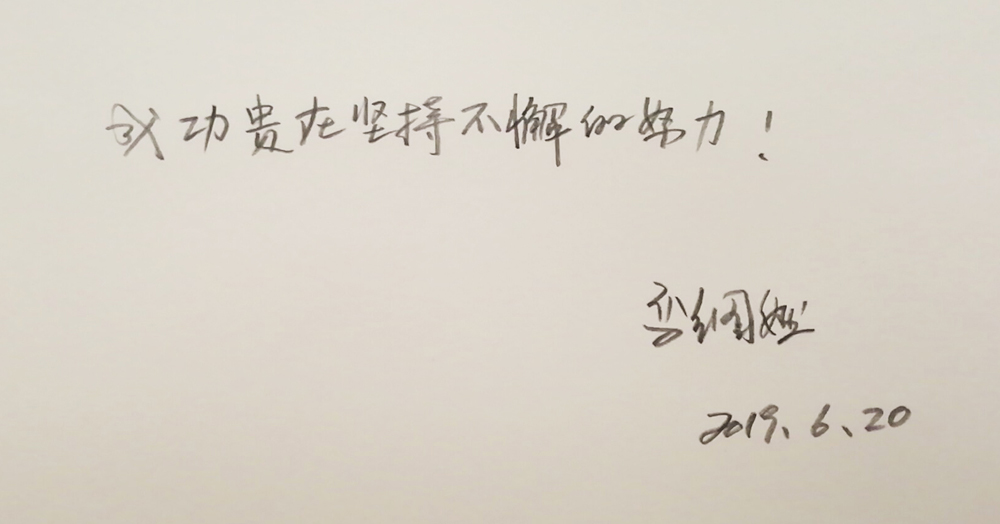 成功贵在坚持不懈的努力!
2019.6.20